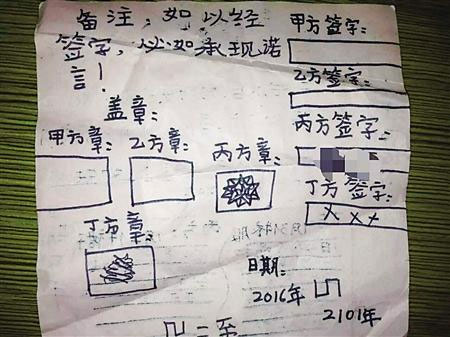 备注:如以经
签字,必如承现诺
言!
甲方签字:
乙方签字:
丙方签字:
丁方签字:
×××
盖章:
甲方章:
乙方章:
丙方章:
丁方章:
日期:
2016年
2101年
二至